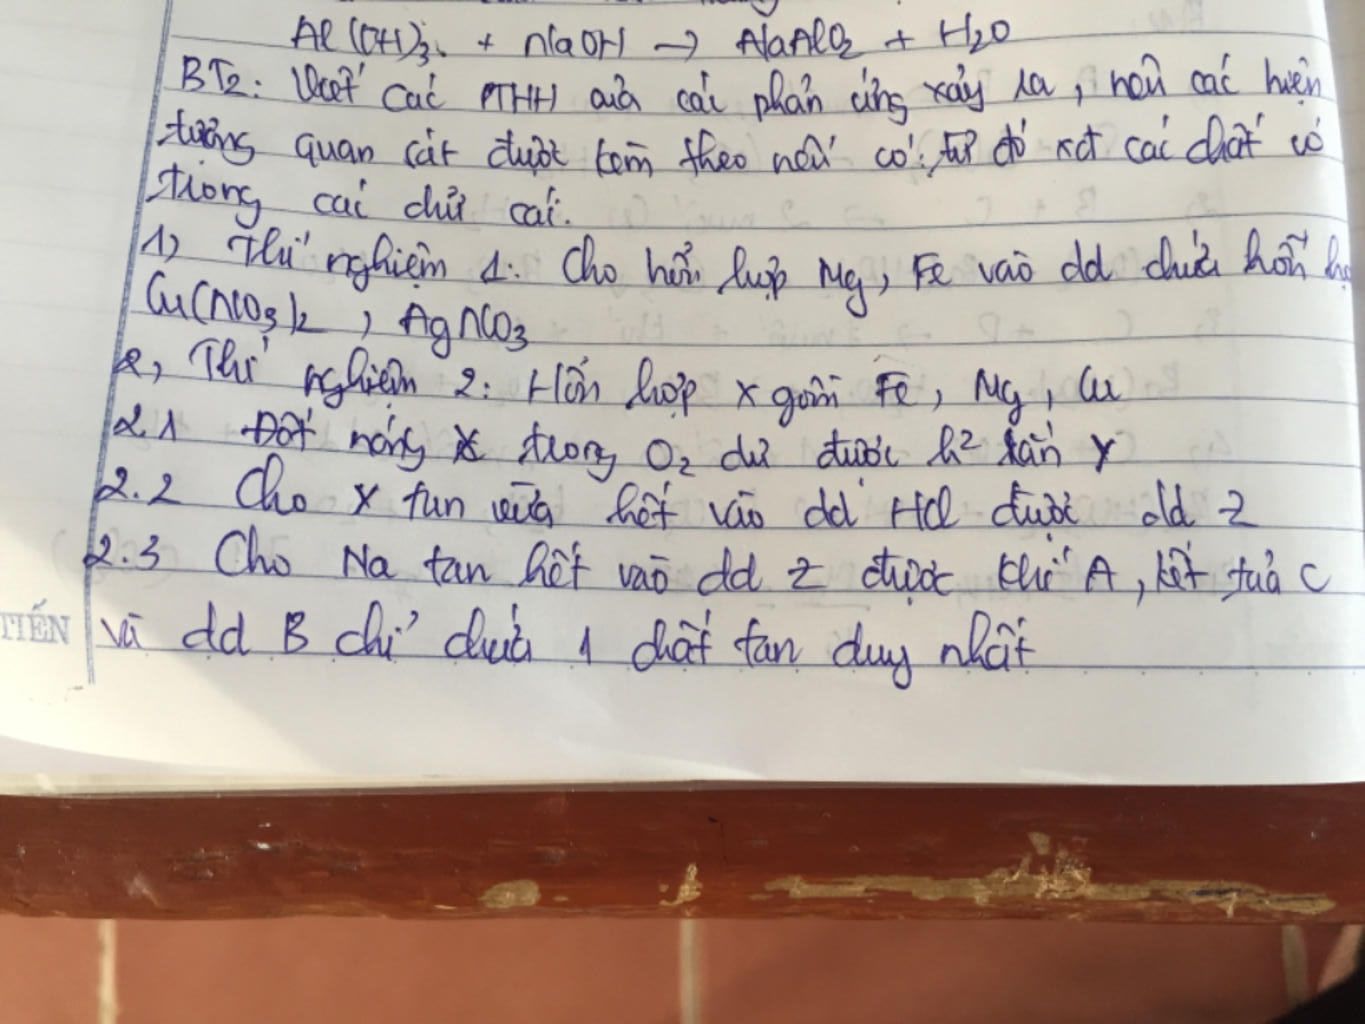 Al(OH)3 + NaOH → NaAlO2 + H2O
BT2: Viết các PTHH của các phản ứng xảy ra, nêu các hiện
tượng quan sát được kèm theo nếu có. từ đó xđ các chất có
trong các chữ cái.
1) Thí nghiệm 1: Cho hỗn hợp Mg, Fe vào dd chứa hỗn
Cu(NO3)2, AgNO3
2, Thí nghiệm 2: Hỗn hợp X gồm Fe, Mg, Cu
2.1 Đốt nóng X trong O2 dư được h2 rắn Y
2.2 Cho X tan vừa hết vào dd HCl được dd Z
2.3 Cho Na tan hết vào dd Z được khí A, kết tủa C
TIẾN và dd B chỉ chứa 1 chất tan duy nhất